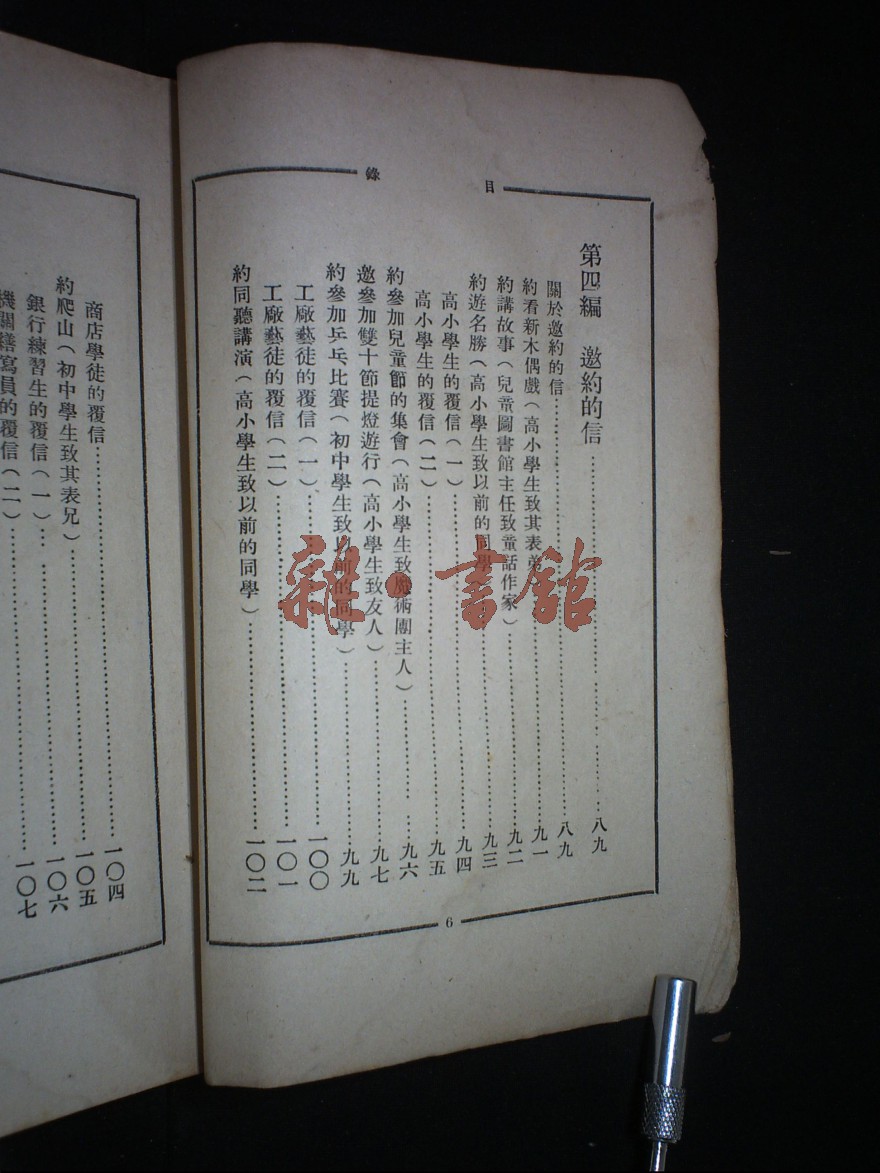 目錄
第四編　邀約的信……八九
關於邀約的信……八九
約看新木偶戲(高小學生致其表弟)……九一
約講故事(兒童圖書館主任致童話作家)……九二
約遊名勝(高小學生致以前的同學)……九三
高小學生的覆信(一)……九四
高小學生的覆信(二)……九五
約參加兒童節的集會(高小學生致魔術團主人)……九六
邀參加雙十節提燈遊行(高小學生致友人)……九七
約參加乒乓比賽(初中學生致以前的同學)……九九
工廠藝徒的覆信(一)……一〇〇
工廠藝徒的覆信(二)……一〇一
約同聽講演(高小學生致以前的同學)……一〇二
6
商店學徒的覆信……一〇四
約爬山(初中學生致其表兄)……一〇五
銀行練習生的覆信(一)……一〇六
機關繕寫員的覆信(二)……一〇七
雜·書館